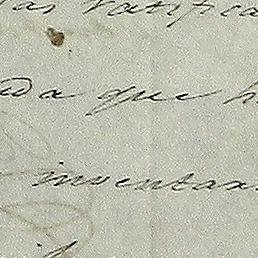 as ratifica
da que h
inventax